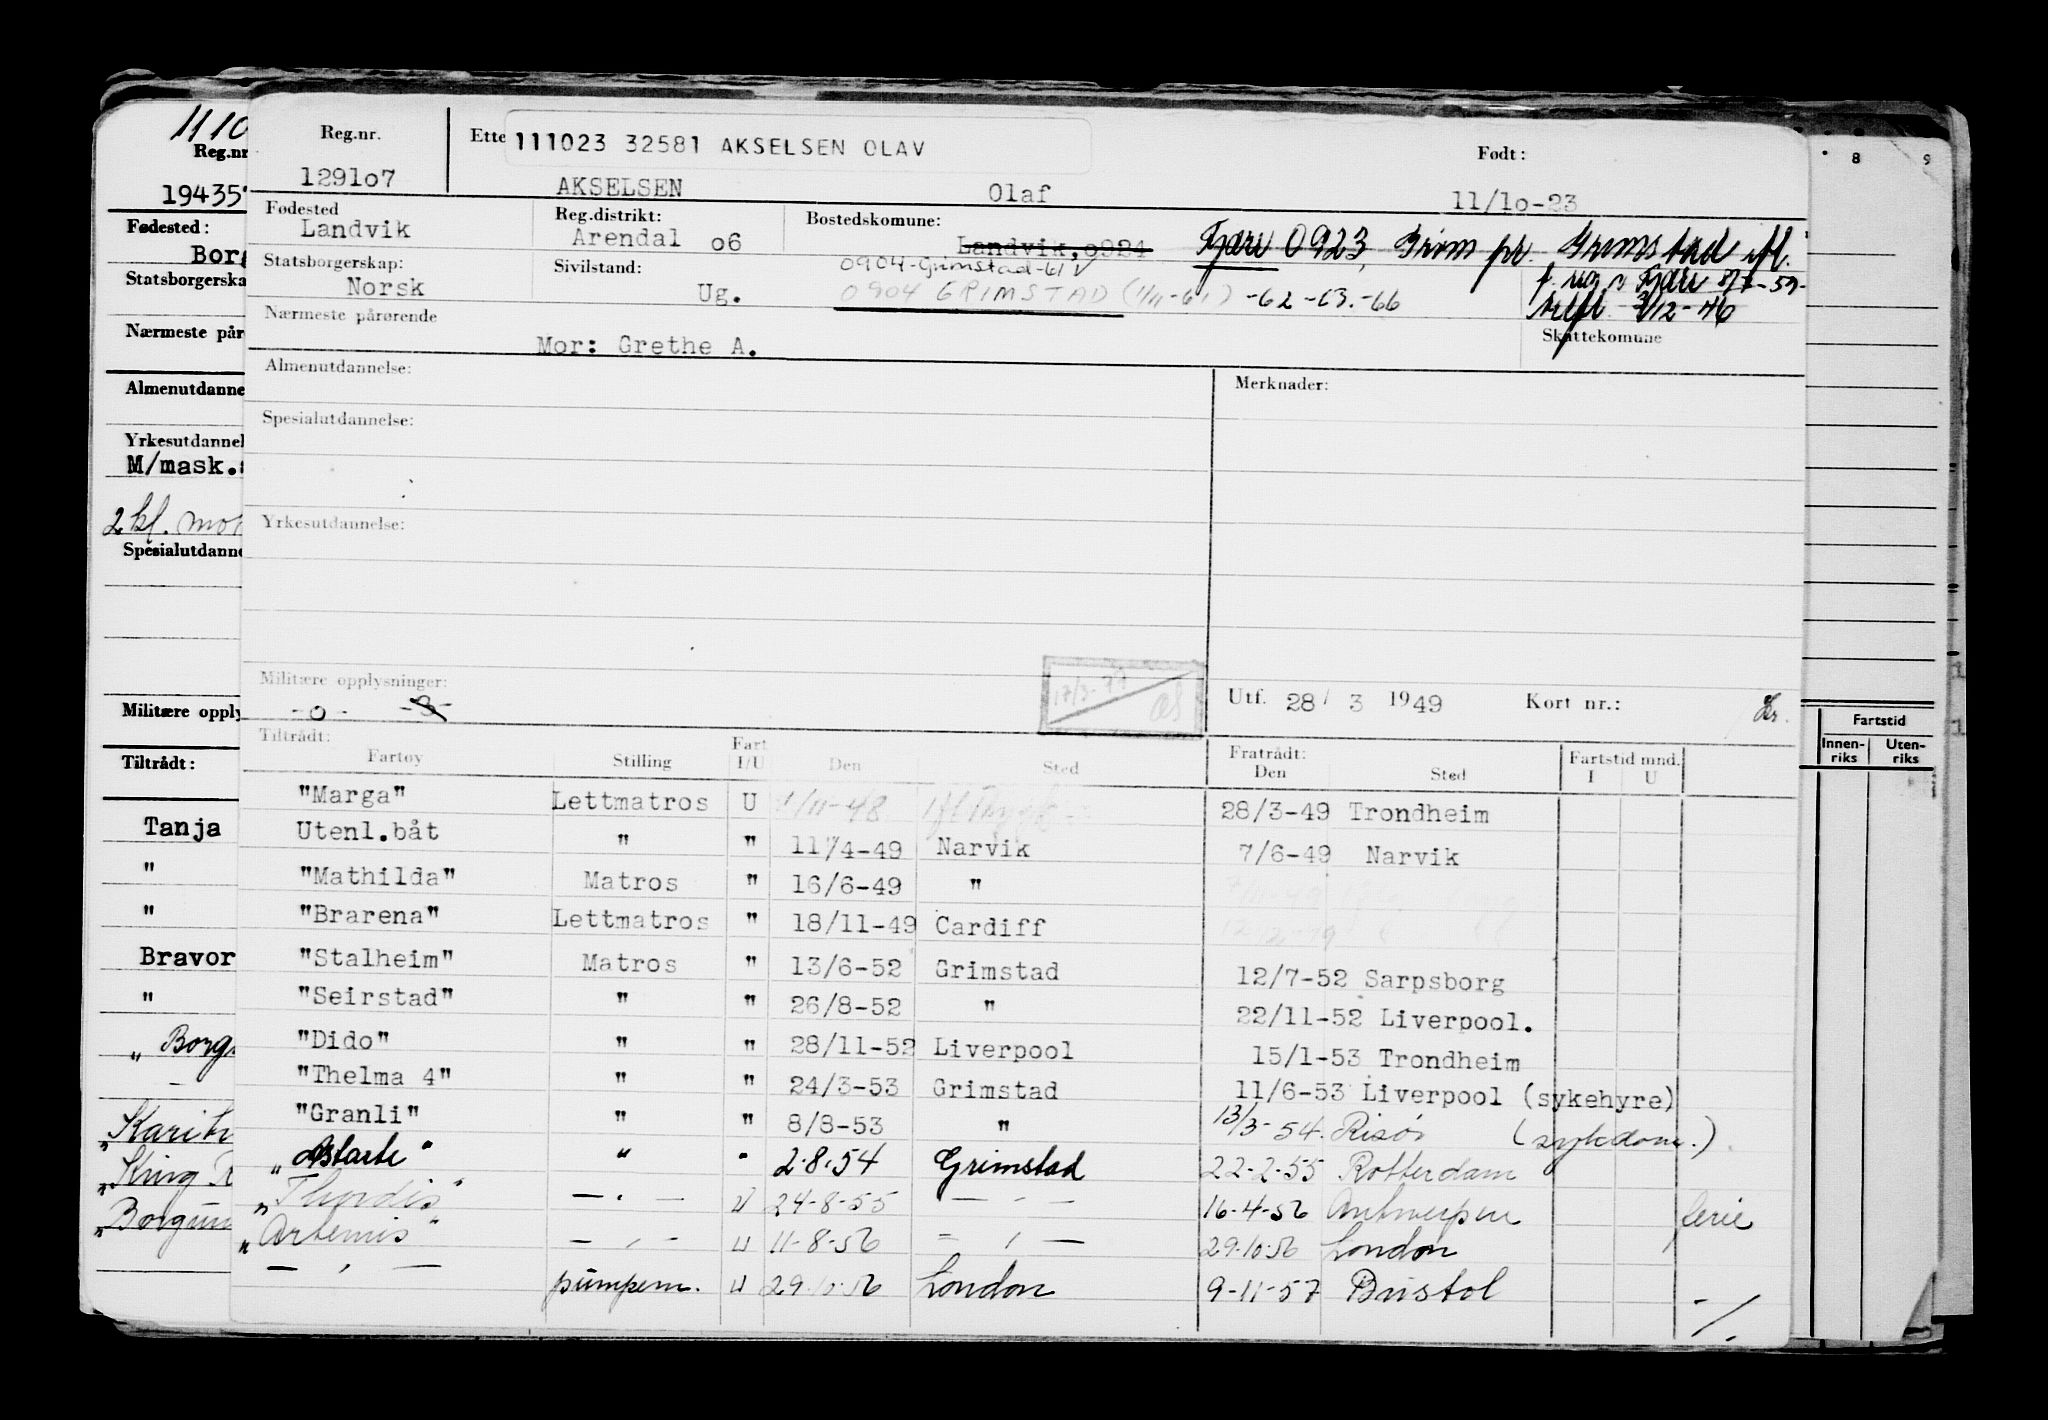 1110
Reg.nr
19435
Fødested:
Bor
Statsborgerska
Nærmeste pår
Almenutdanne
Yrkesutdannel
M/mask.
2 kl. mo
Spesialutdanne
Militære opply
Tiltrådt:
Tanja
"
"
Bravor
"
„ Borg
—
„Karit
„King
„Borgun
8 9
Fartstid
Innen-riks Uten-riks
Reg.nr. Ette 111023 32581 AKSELSEN OLAV Født:
1291o7 AKSELSEN Olaf 11/1o-23
Fødested Reg.distrikt: Bostedskomune:
Landvik Arendal o6 Landvik,o924 Fjære 0923, Grim pr. Grimstad
Statsborgerskap: Sivilstand: 0904-Grimstad-61 V Fjære 8/7-59
Norsk Ug. 0904 GRIMSTAD (1/11-61) -62-63.-66 3/12-46
Nærmeste pårørende Skattekomune
Mor: Grethe A.
Almenutdannelse: Merknader:
Spesialutdannelse:
Yrkesutdannelse:
Militære opplysninger: 17/3-79
-o- -S- Utf. 28/ 3 1949 Kort nr.:
Tiltrådt: Fratrådt: Fartstid mnd.
Fartøy Stilling Fart I/U Den Sted Den Sted I U
"Marga" Lettmatros U 1/11-48 28/3-49 Trondheim
Utenl.båt " " 11/4-49 Narvik 7/6-49 Narvik
"Mathilda" Matros " 16/6-49 "
"Brarena" Lettmatros " 18/11-49 Cardiff
"Stalheim" Matros " 13/6-52 Grimstad 12/7-52 Sarpsborg
"Seirstad" " " 26/8-52 " 22/11-52 Liverpool.
"Dido" " " 28/11-52 Liverpool 15/1-53 Trondheim
"Thelma 4" " " 24/3-53 Grimstad 11/6-53 Liverpool (sykehyre)
"Granli" " " 8/8-53 " 13/3-54. Risør (sykdom.)
„Astarte" " " 2.8.54 Grimstad 22-2-55 Rotterdam
„Thordis" — " — U 24-8-55 — " — 16-4-56 Antwerpen ferie
„Artemis" — " — U 11-8-56 — " — 29.10.56 London
— " — pumpem. U 29.10.56 London 9-11-57 Bristol -/.